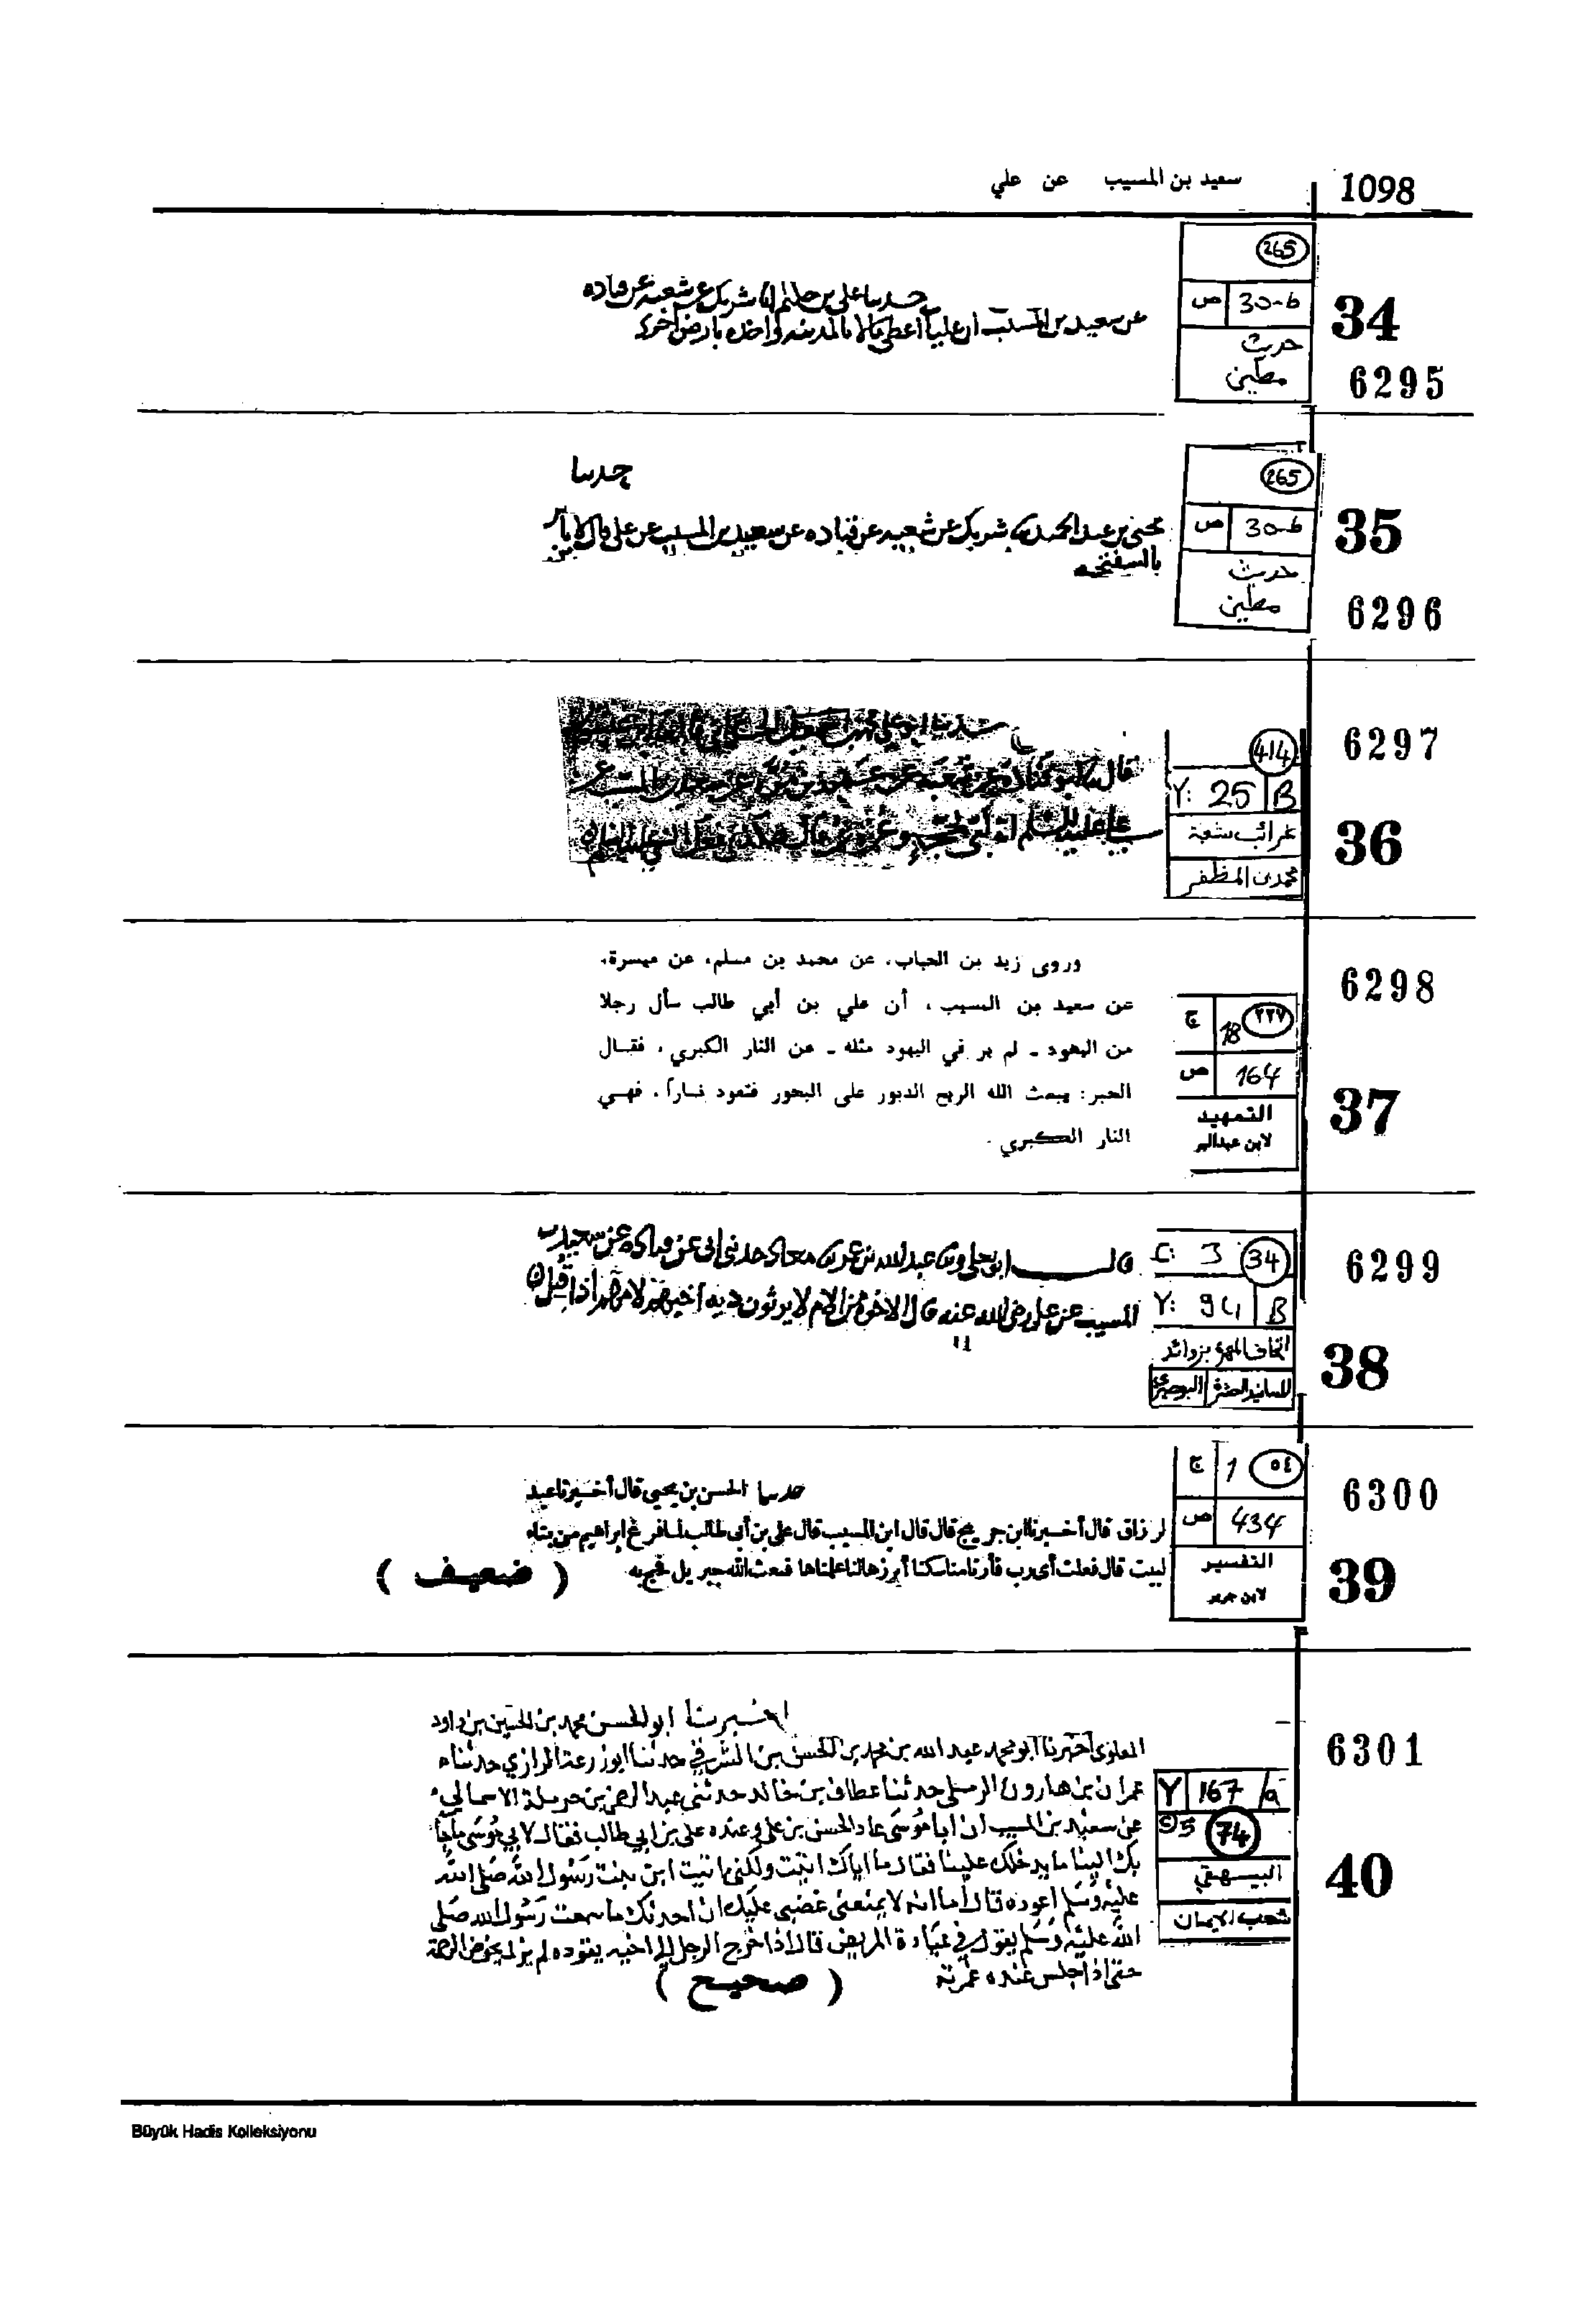 1098
سعيد بن المسيب عن علي
265
ص 30-b
حديث
مطين
34
6295
حدثنا علي بن حكيم انا شريك عن شعبه عن قتاده
عن سعيد بن المسيب ان عليا اعطى مالا بالمدينه واخذه بارض اخرى
265
ص 30-b
حديث
مطين
35
6296
حدثنا
يحيى بن عبد الحميد شريك عن شعبه عن قتاده عن سعيد بن المسيب عن علي قال لا باس
بالسفتجه
6297
414
Y: 25 B
غرائب شعبة
محمد بن المظفر
36
قال
6298
٢٢٧ 18 ج
164 ص
التمهيد
لابن عبدالبر
37
وروى زيد بن الحباب، عن محمد بن مسلم، عن ميسرة،
عن سعيد بن المسيب، أن علي بن أبي طالب سأل رجلا
من اليهود - لم ير في اليهود مثله - عن النار الكبرى، فقال
الحبر: يبعث الله الريح الدبور على البحور فتعود نارا، فهي
النار الكبرى.
6299
34 C: 3
Y: 94 B
اتحاف المهرة بزوائد
المسانيد العشرة البوصيري
38
قال ابو يعلى وثنا عبد الله بن عمر بن معاذ حدثني ابي عن قتادة عن سعيد بن
المسيب عن علي رضي الله عنه قال الاخوة من الام لا يرثون دية اخيهم لامهم اذا قتل
6300
٥٤ 1 ج
434 ص
التفسير
لابن جرير
39
حدثنا الحسن بن يحيى قال أخبرنا عبد
لرزاق قال أخبرنا ابن جريج قال قال ابن المسيب قال علي بن أبي طالب لما فرغ ابراهيم من بناء
لبيت قال فعلت أى رب فأرنا مناسكنا أبرزها لنا علمناها فبعث الله جبريل فحج به
( ضعيف )
6301
Y 167/a
74
البيهقي
شعب الايمان
40
اخبرنا ابو الحسن محمد بن الحسين بن داود
العلوى اخبرنا ابو محمد عبد الله بن محمد بن الحسن بن الشرقي حدثنا ابو زرعة الرازي حدثنا
عمران بن هارون الرملى حدثنا عطاف بن خالد حدثنى عبد الرحمن بن حرملة الاسلمي
عن سعيد بن المسيب ان ابا موسى عاد الحسن بن علي وعنده علي بن ابي طالب فقال لابي موسى ما جاء
بك الينا ما يدخلك علينا فقال ما اياك اتيت ولكني اتيت ابن بنت رسول الله صلى الله
عليه وسلم اعوده قال اما انه لا يمنعنى غضبى عليك ان احدثك ما سمعت رسول الله صلى
الله عليه وسلم يقول في عيادة المريض قال اذا خرج الرجل الى اخيه يعوده لم يزل يخوض الرحمة
حتى اذا جلس عنده غمرته
( صحيح )
Büyük Hadis Kolleksiyonu